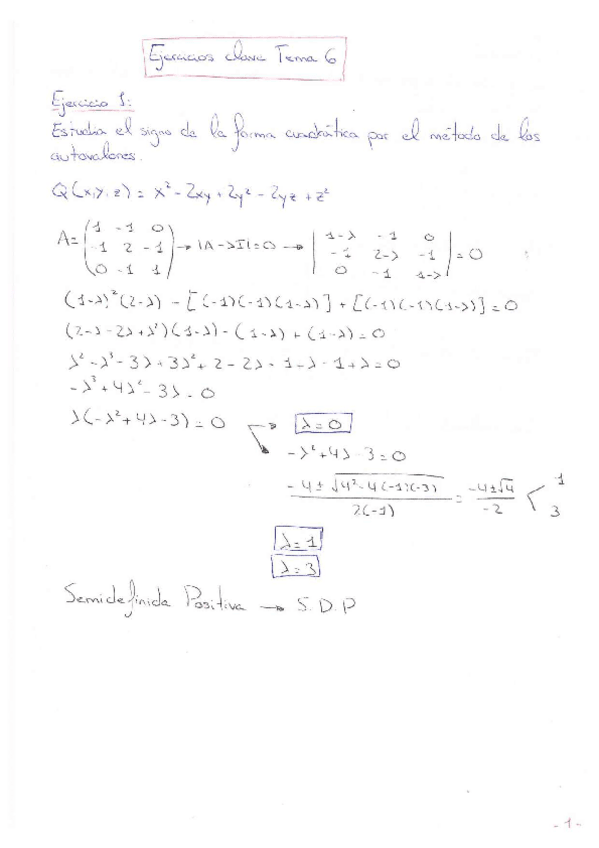 Ejercicios clave Tema 6
Ejercicio 1:
Estudia el signo de la forma cuadrática por el método de los
autovalores.
Q(x,y,z) = x² - 2xy + 2y² - 2yz + z²
A = (1 -1 0 / -1 2 -1 / 0 -1 1) → |A - λI| = 0 → |1-λ -1 0 / -1 2-λ -1 / 0 -1 1-λ| = 0
(1-λ)²(2-λ) - [(-1)(-1)(1-λ)] + [(-1)(-1)(1-λ)] = 0
(2-λ-2λ+λ²)(1-λ) - (1-λ) + (1-λ) = 0
λ² - λ³ - 3λ + 3λ² + 2 - 2λ - 1 - λ - 1 + λ = 0
-λ³ + 4λ² - 3λ = 0
λ(-λ² + 4λ - 3) = 0 → λ = 0
-λ² + 4λ - 3 = 0
-4 ± √4² - 4(-1)(-3) / 2(-1) = -4 ± √4 / -2 < 1 3
λ = 1
λ = 3
Semidefinida Positiva → S.D.P
- 1 -